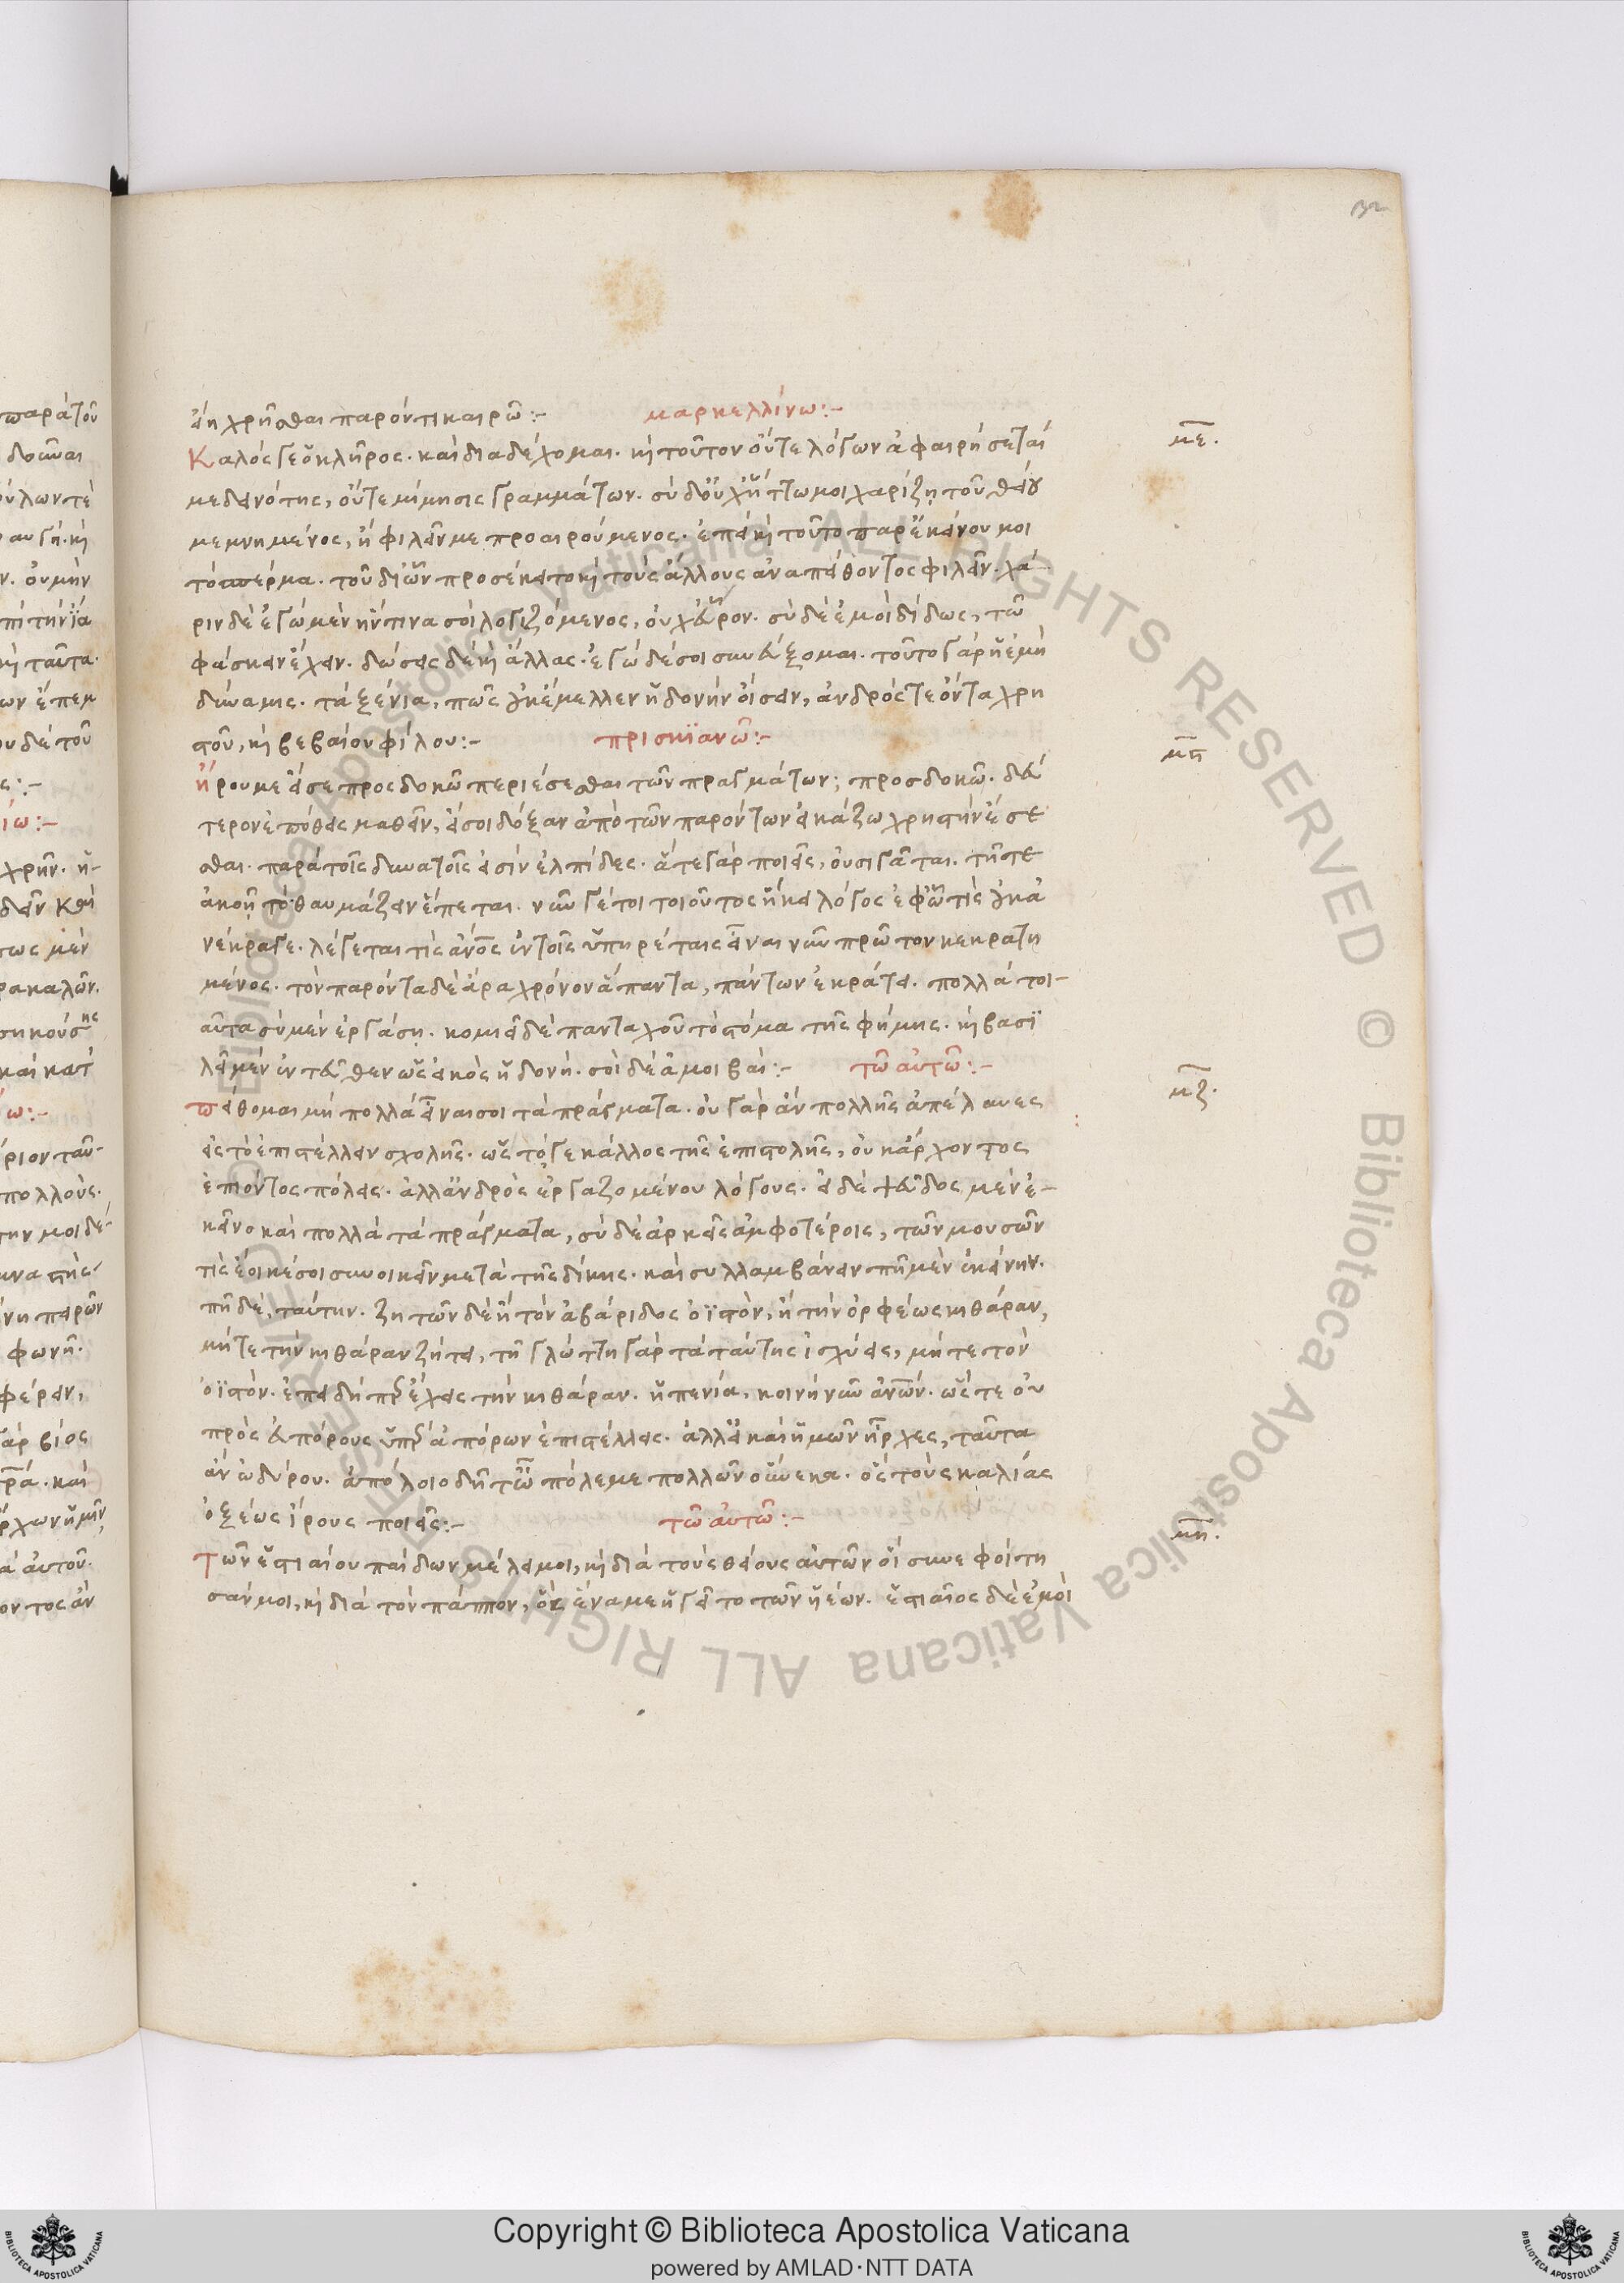 132
εἴη χρῆσθαι παρόντι καιρῶ:-
μαρκελλίνω:-
με.
Καλός γε ὁ κλῆρος. καὶ διαδέχομαι. κ τοῦτον οὔτε λόγων ἀφαιρήσεταί
με δεινότης, οὔτε μίμησις γραμμάτων. σὺ δ' οὐχ ἧττω μοι χαρίζῃ τοῦ θείου
μεμνημένος, ἢ φιλεῖν με προαιρούμενος. ἐπεὶ κ τοῦτο παρ' ἐκείνου μοι
τὸ σπέρμα. τοῦ δι' ὧν προσέκειτο κ τοὺς ἄλλους ἀναπείθοντος φιλεῖν. χά
ριν δὲ ἐγὼ μὲν ἥντινα σοὶ λογιζόμενος, οὐχ εὗρον. σὺ δὲ ἐμοὶ δίδως, τῶ
φάσκειν ἔχειν. δώσεις δὲ κ ἄλλας. ἐγὼ δέ σοι συνεύξομαι. τοῦτο γὰρ ἡ ἐμὴ
δύναμις. τὰ ξένια, πῶς οὐκ ἔμελλεν ἡδονὴν οἴσειν, ἀνδρός τε ὄντα χρη
στοῦ, κ βεβαίου φίλου:-
πρισκϊανῶ:-
μϛ
ἤρου με εἴ σε προσδοκῶ περιέσεσθαι τῶν πραγμάτων; προσδοκῶ. δεύ
τερον ἐπόθεις μαθεῖν, εἴ σοι δόξαν ἀπὸ τῶν παρόντων εἰκάζω χρηστὴν ἔσε
σθαι. παρὰ τοῖς δυνατοῖς εἰσὶν ἐλπίδες. ἅ τε γὰρ ποιεῖς, οὐ σιγᾶται. τῇ στε
ἀκοῇ τὸ θαυμάζειν ἕπεται. νῦν γέ τοι τοιοῦτος ἧκε λόγος ἐφ' ὧ τίς οὐκ ἀ
νέκραγε. λέγεται τίς ἀνος ἐν τοῖς ὑπηρέταις εἶναι νῦν πρῶτον κεκρατη
μένος. τὸν παρόντα δὲ ἄρα χρόνον ἅπαντα, πάντων ἐκράτει. πολλὰ τοι-
αῦτα σὺ μὲν ἐργάσῃ. κομιεῖ δὲ πανταχοῦ τὸ στόμα τῆς φήμης. κ βασϊ
λεῖ μὲν ἐντεῦθεν ὡς εἰκὸς ἡδονή. σοὶ δὲ ἀμοιβαί:-
τῶ αὐτῶ:-
μζ.
Πείθομαι μὴ πολλὰ εἶναι σοι τὰ πράγματα. οὐ γὰρ ἂν πολλῆς ἀπέλαυες
εἰς τὸ ἐπιστέλλειν σχολῆς. ὡς τό γε κάλλος τῆς ἐπιστολῆς, οὐκ ἄρχοντος
ἐπιόντος πόλεις. ἀλλ' ἀνδρὸς ἐργαζομένου λόγους. εἰ δὲ ψεῦδος μὲν ἐ-
κεῖνο καὶ πολλὰ τὰ πράγματα, σὺ δὲ ἀρκεῖς ἀμφοτέροις, τῶν μουσῶν
τίς ἔοικέ σοι συνοικεῖν μετὰ τῆς δίκης. καὶ συλλαμβάνειν πῆ μὲν ἐκείνην.
πῆ δὲ, ταύτην. ζητῶν δὲ ἢ τὸν ἀβάριδος ὀϊστὸν, ἢ τὴν ὀρφέως κιθάραν,
μήτε τὴν κιθάραν ζήτει, τῆ γλώττη γὰρ τὰ ταύτης ἰσχύεις, μήτε τὸν
ὀϊστόν. ἐπειδήπερ ἔχεις τὴν κιθάραν. ἡ πενία, κοινὴ νῦν ἀνων. ὥστε οὐ
πρὸς εὐπόρους ὑπὲρ ἀπόρων ἐπιστέλλεις. ἀλλ' εἰ καὶ ἡμῶν ἦρχες, ταῦτα
ἂν ὠδύρου. ἀπόλοιο δῆτ' ὦ πόλεμε πολλῶν οὕνεκα. ὃς τοὺς καλίας
ὀξέως ἴρους ποιεῖς:-
τῶ αὐτῶ:-
μη.
Τῶν ἑστιαίου παίδων μέλει μοι, κ διὰ τοὺς θείους αὐτῶν οἳ συνεφοίτη
σάν μοι, κ διὰ τὸν πάππον, ὃς ἕνα με ἡγεῖτο τῶν ἡέων. ἑστιαῖος δὲ ἐμοὶ
Copyright © Biblioteca Apostolica Vaticana
powered by AMLAD·NTT DATA